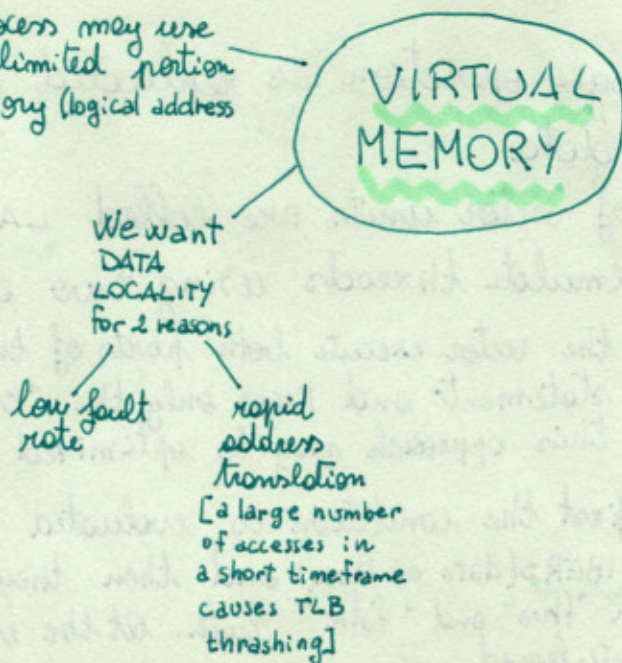 ocess may use
limited portion
ory (logical address
VIRTUAL
MEMORY
We want
DATA
LOCALITY
for 2 reasons
low fault
rate
rapid
address
translation
[a large number
of accesses in
a short timeframe
causes TLB
thrashing]